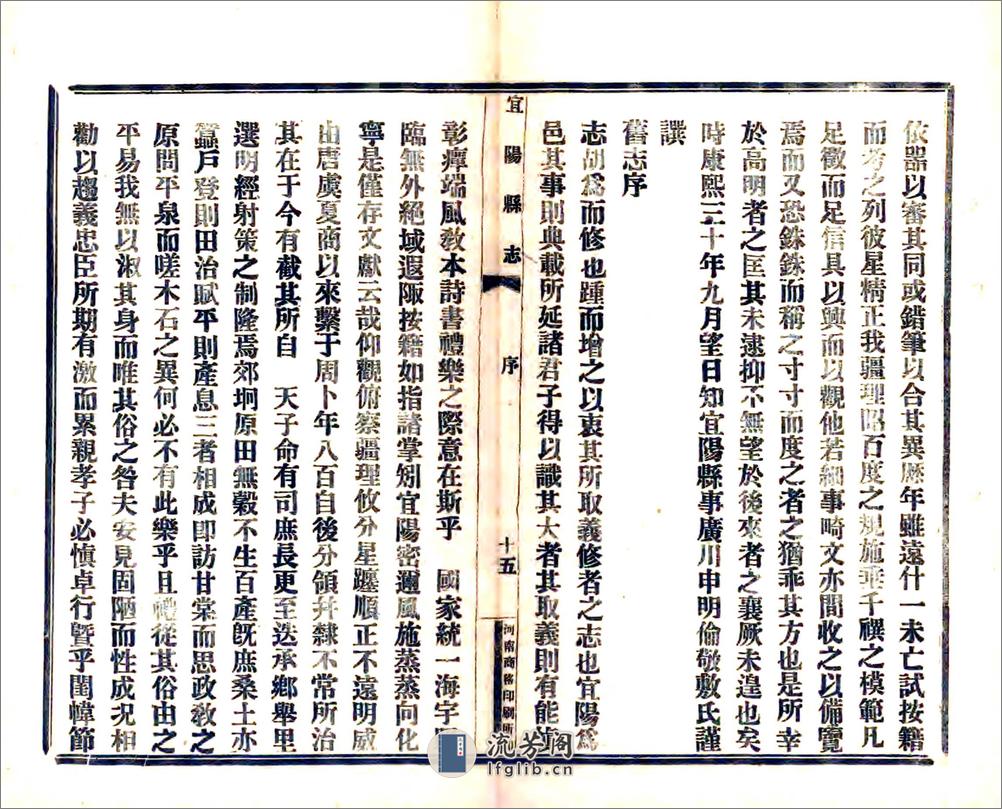 依器以審其同或錯筆以合其異歷年雖遠什一未亡試按籍
而考之列彼星精正我疆理昭百度之規施垂千禩之模範凡
足徵而足信具以興而以觀他若細事畸文亦間收之以備覽
焉而又恐銖銖而稱之寸寸而度之者之猶乖其方也是所幸
於高明者之匡其未逮抑不無望於後來者之襄厥未遑也矣
時康熙三十年九月望日知宜陽縣事廣川申明倫敬敷氏謹
譔
舊志序
志胡爲而修也踵而增之以衷其所取義修者之志也宜陽爲
邑其事則典載所延諸君子得以識其大者其取義則有能
宜陽縣志
序
十五
河南商務印刷所
彰癉端風敎本詩書禮樂之際意在斯乎 國家統一海宇
臨無外絕域遐陬按籍如指諸掌矧宜陽密邇風施蒸蒸向化
寧是僅存文獻云哉仰觀俯察疆理攸分星躔順正不遠明威
由唐虞夏商以來繫于周卜年八百自後分領幷隸不常所治
其在于今有截其所自 天子命有司庶長更至迭承鄉舉里
選明經射策之制隆焉郊坰原田無穀不生百產旣庶桑土亦
蠶戶登則田治賦平則產息三者相成即訪甘棠而思政敎之
原問平泉而嗟木石之異何必不有此樂乎且禮從其俗由之
平易我無以淑其身而唯其俗之咎夫安見固陋而性成况相
勸以趨義忠臣所期有激而累親孝子必愼卓行曁乎閨幃節
流芳閣
lfglib.cn